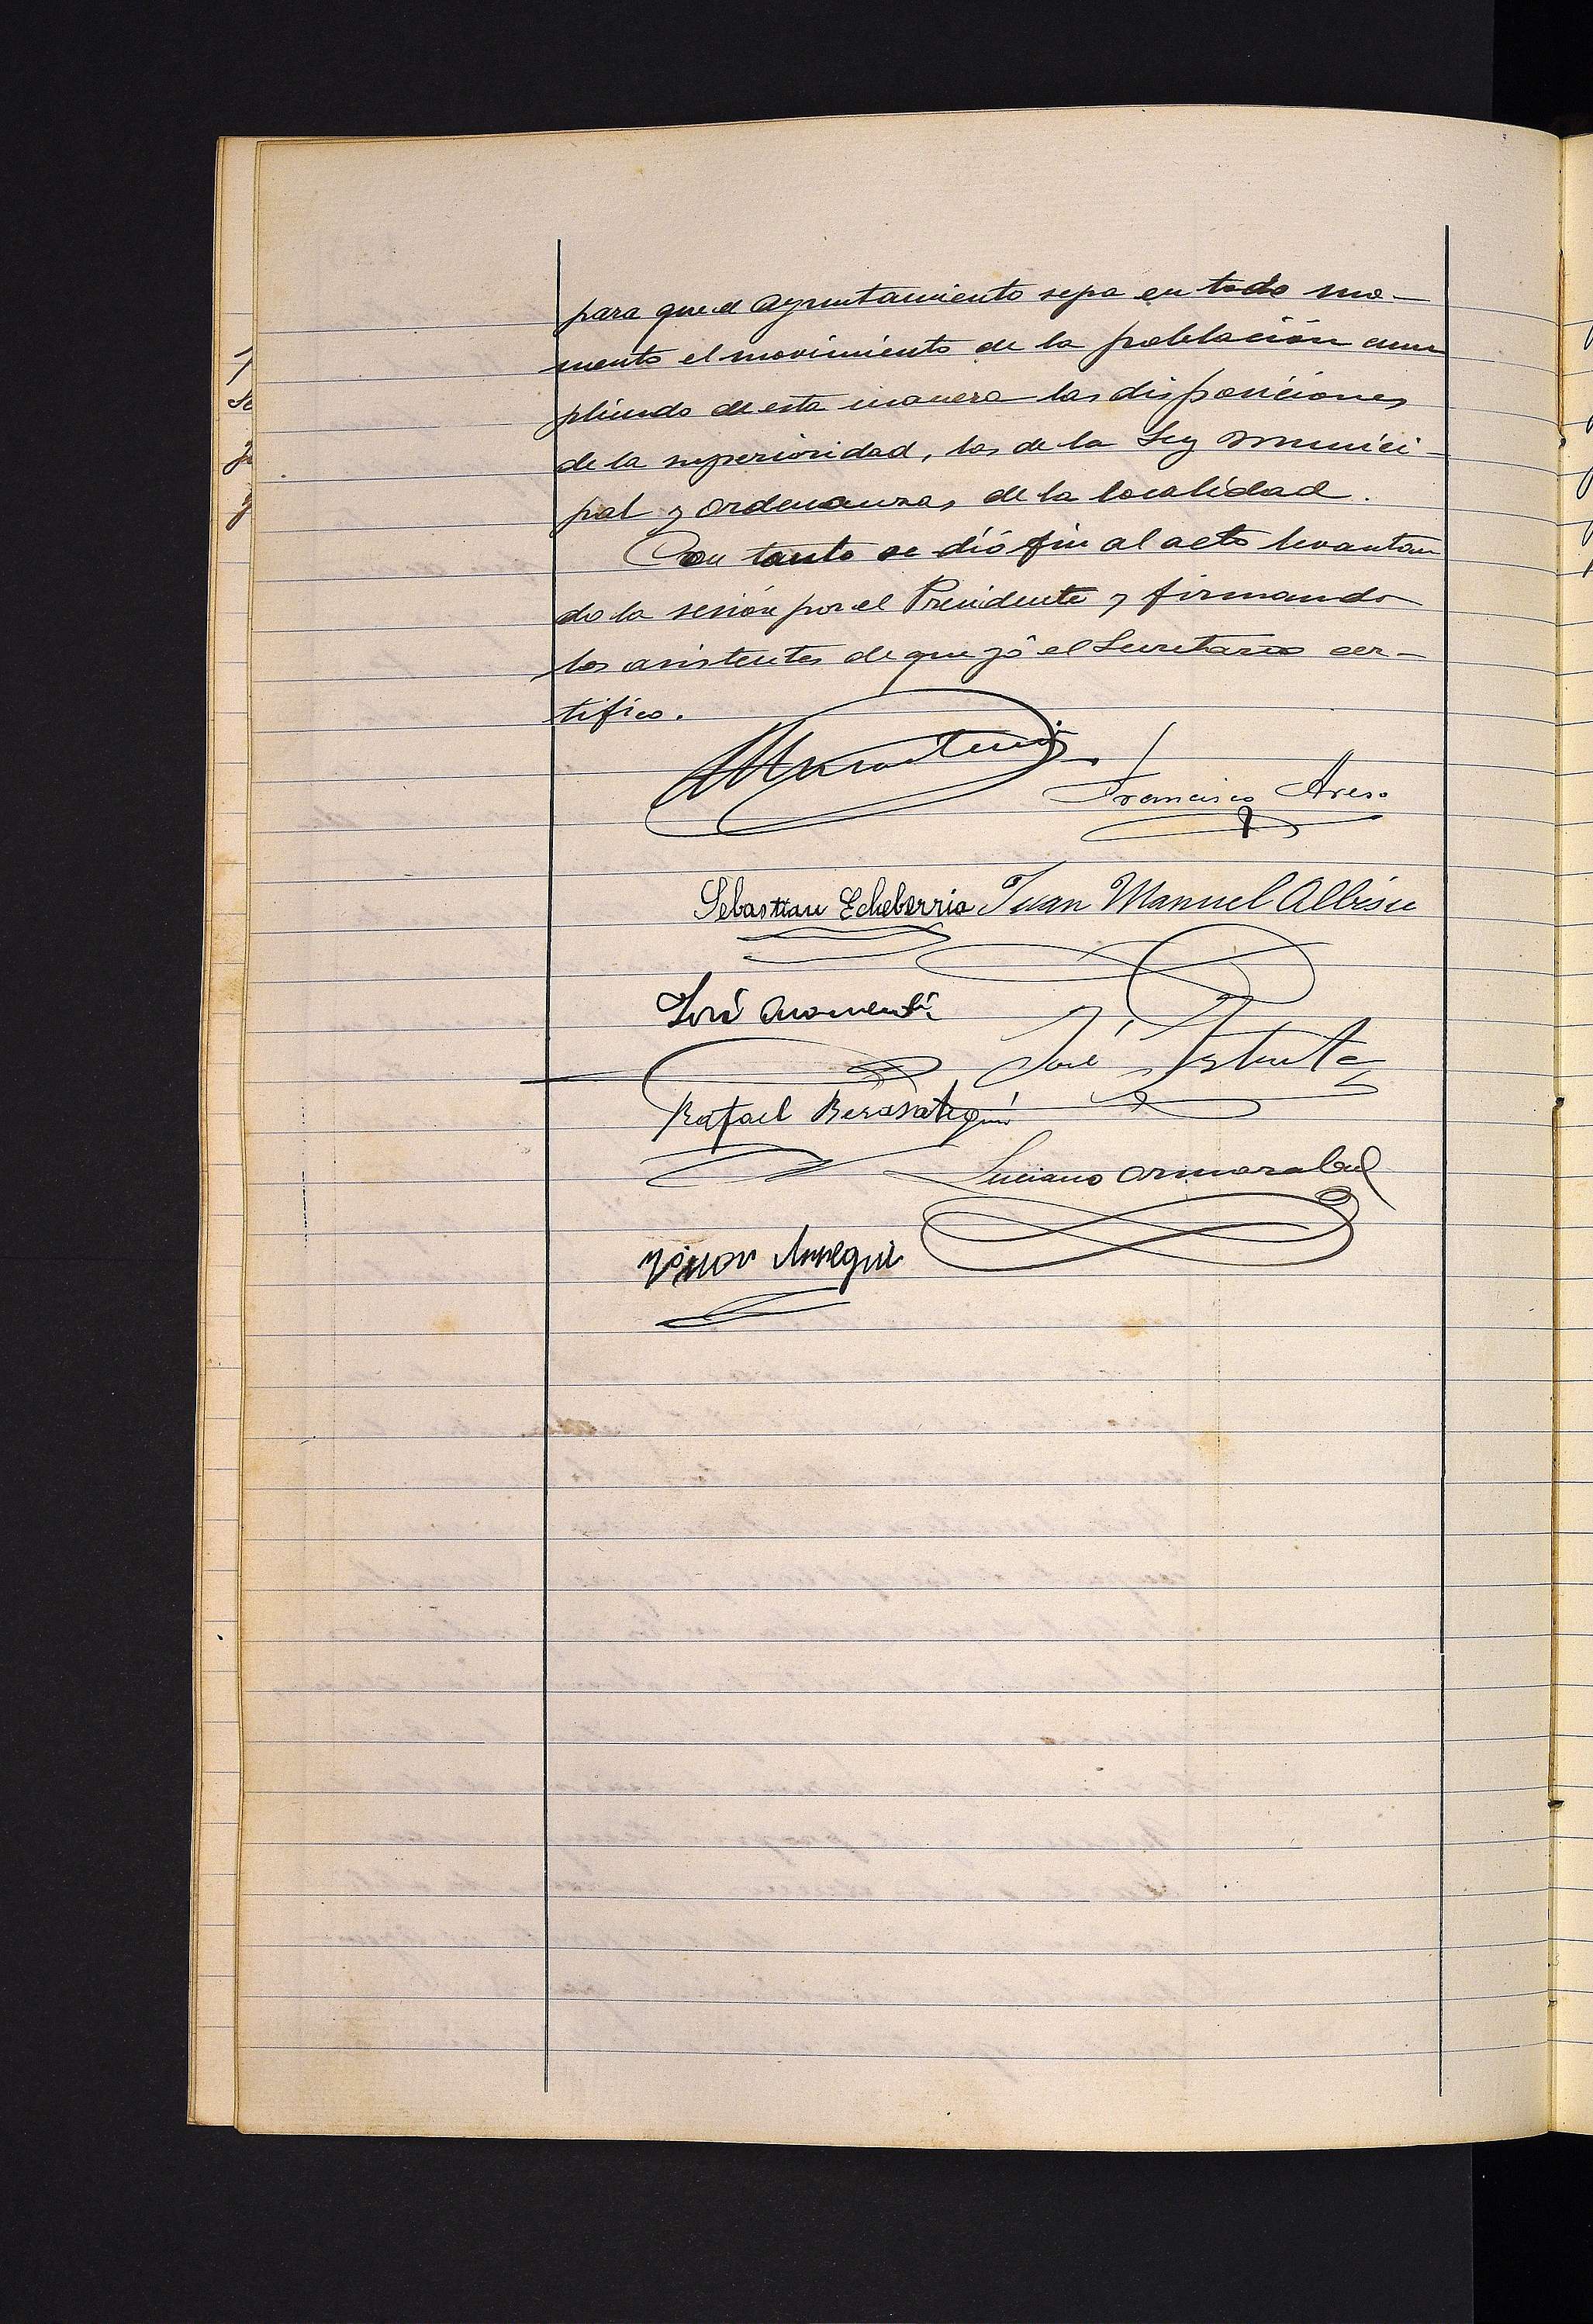 para que el Ayuntamiento sepa en todo mo-
mento el movimiento de la población cum
pliendo de esta manera las disposiciones
de la superioridad, las de la Ley Munici-
pal y ordenanzas de la localidad.
Con tanto se dió fin al acto levantan
do la sesión por el Presidente y firmando
los asistentes de que yó el Secretario cer-
tifico.
Francisco Areso
Sebastian Echeberria Juan Manuel Albisu
José
José
Rafael Berasategui
Luciano